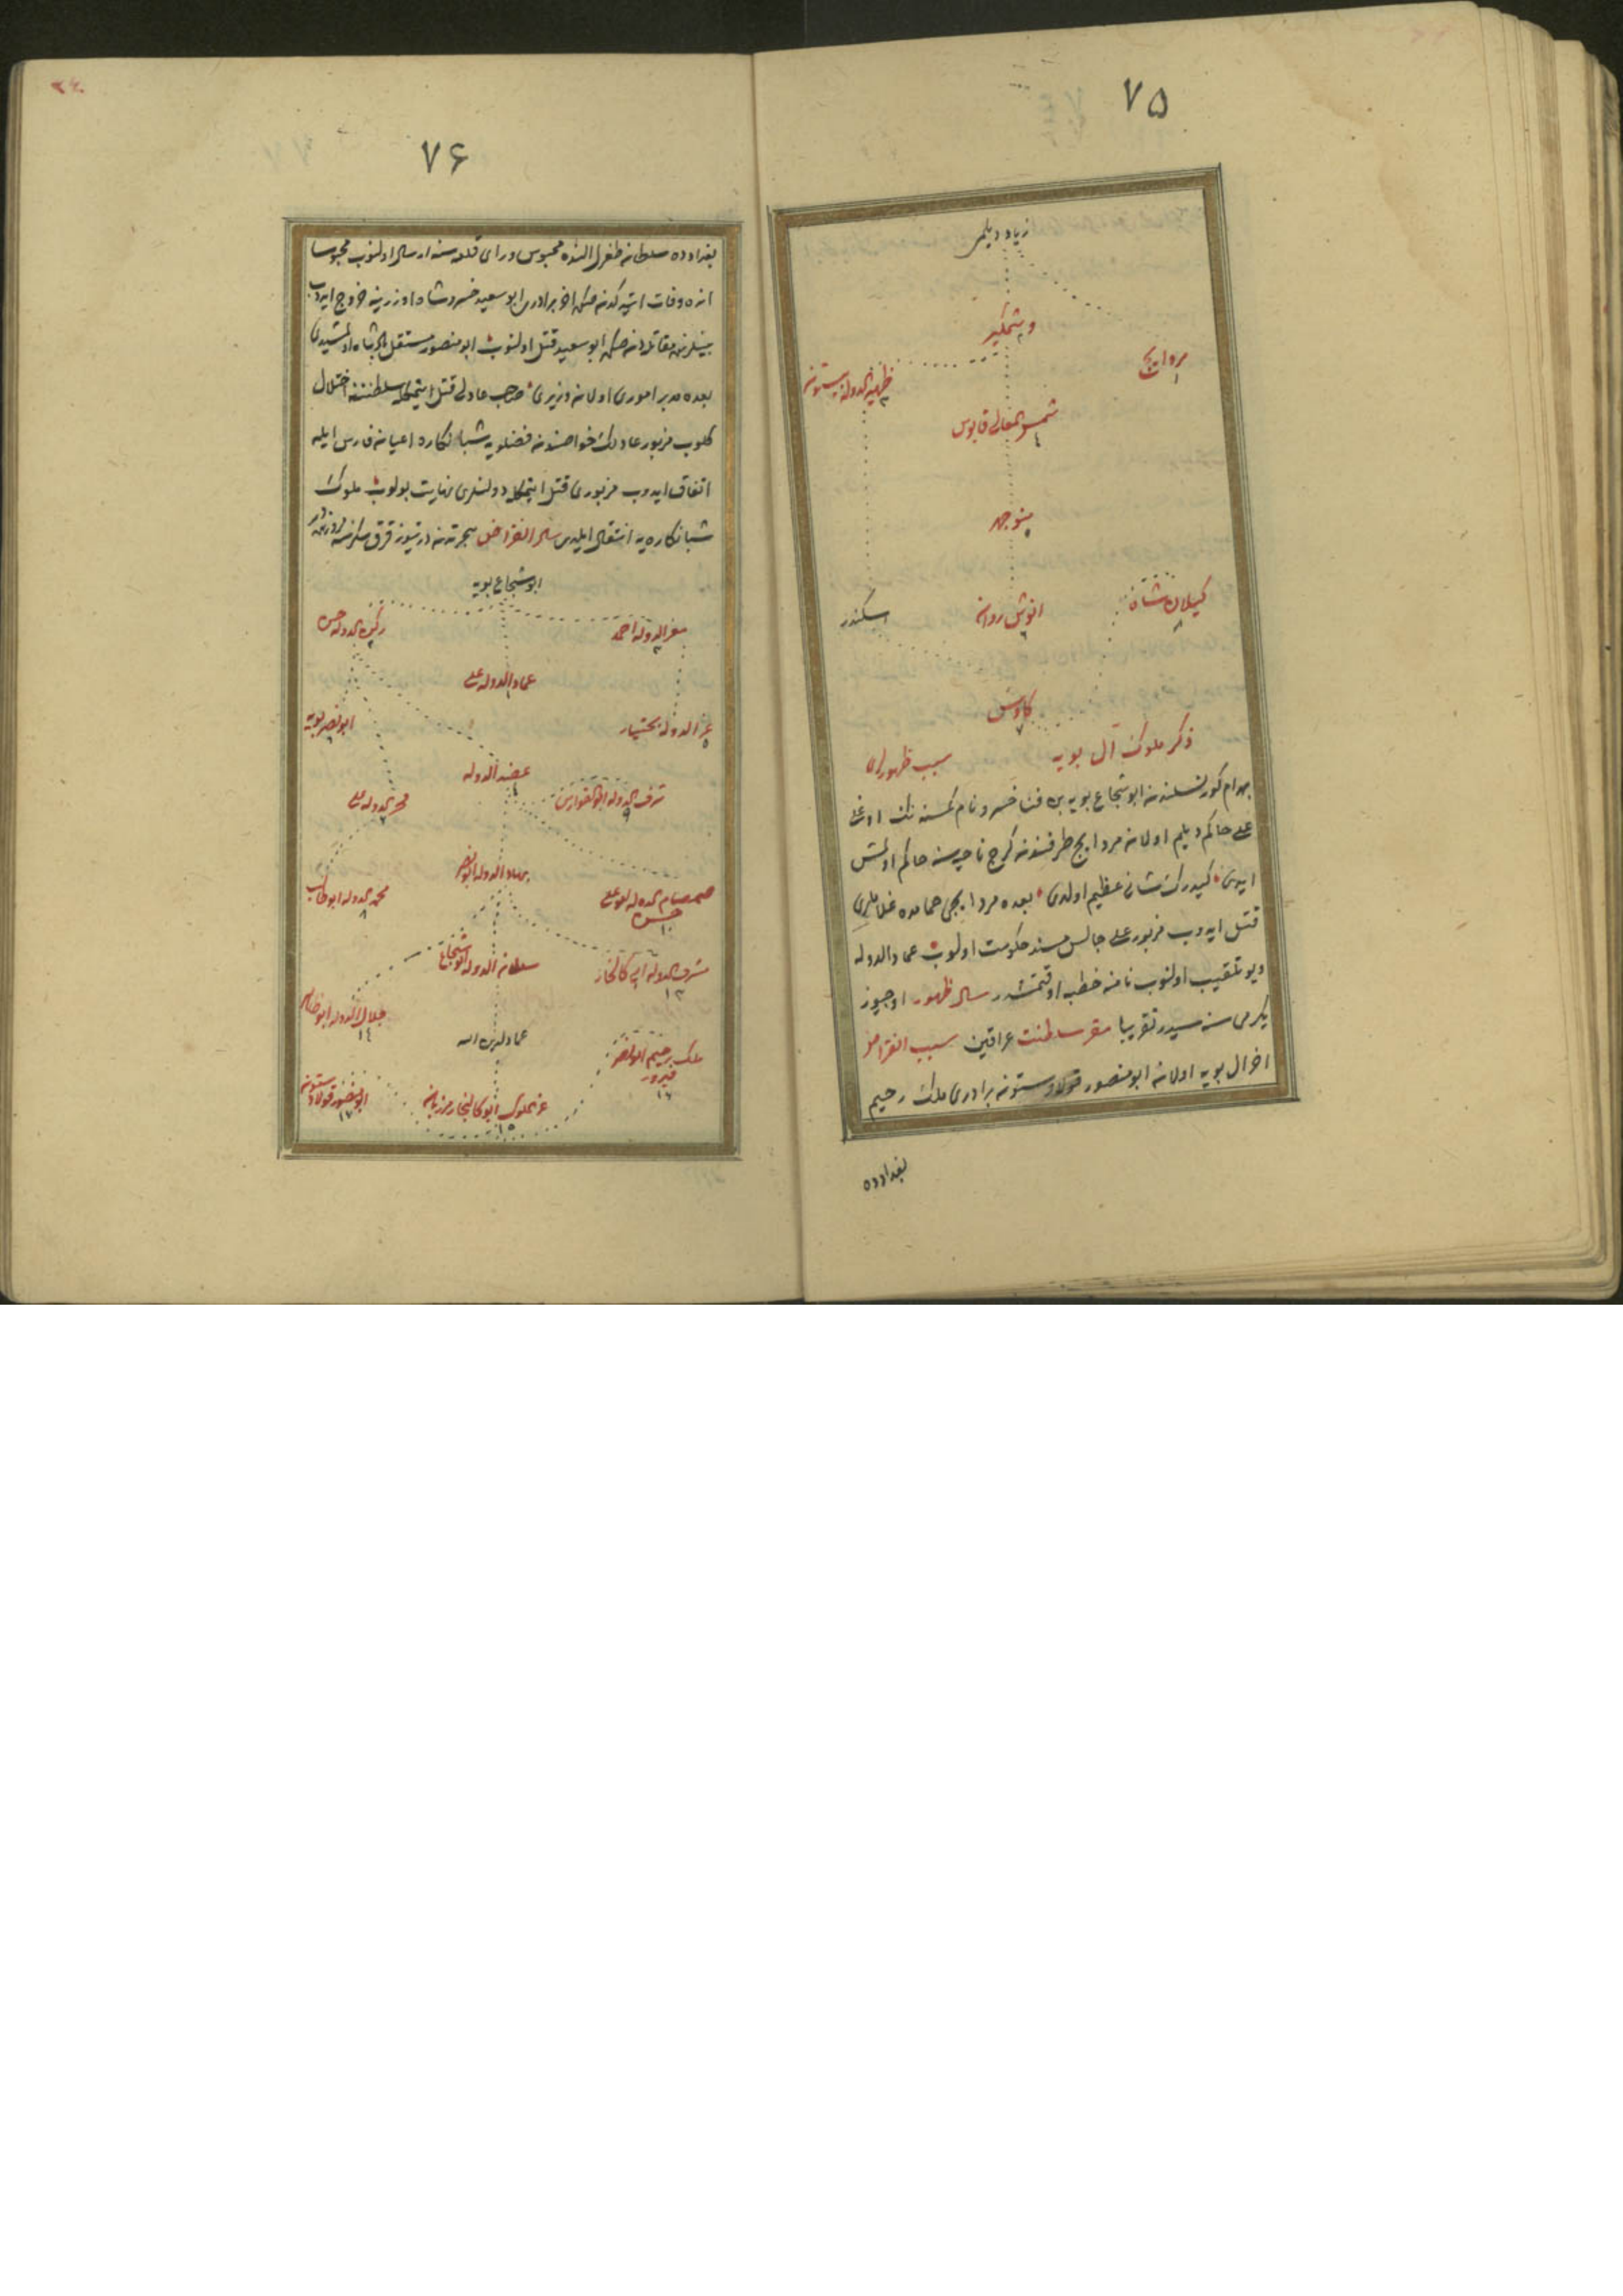 ٧٥
زیاد دیلمی
وشمکیر
٢
مرداویج
١
ظهیر الدوله بیستون
٣
شمس المعالی قابوس
٤
منوچهر
٥
کیلان شاه
٨
انوش روان
٦
اسکندر
کاوس
٧
ذکر ملوک آل بویه سبب ظهورلری
بهرام کور نسلندن ابو شجاع بویه بن فنا خسرو نام کمسنه نک اوغلی
علی حاکم دیلم اولان مرداویج طرفندن کرج ناحیه سنه حاکم اولمش
ایدی کیدرک شانی عظیم اولدی بعده مرداویجی حمامده غلاملری
قتل ایدوب مزبور علی جالس مسند حکومت اولوب عماد الدوله
دیو تلقیب اولنوب نامنه خطبه اوقنمشدر سال ظهور اوچیوز
یکرمی سنه سیدر تقریبا مقر سلطنت عراقین سبب انقراض
اخر ال بویه اولان ابو منصور فولادستون برادری ملک رحیم
بغدادده
٧۶
بغدادده سلطان طغرل النده محبوس و رای قلعه سنه ارسال اولنوب محبوسا
انده وفات ایتدکدنصکره اخر برادری ابو سعید خسرو شاه اوزرینه خروج ایدوب
بینلرنده مقاتله دنصکره ابو سعید قتل اولنوب ابو منصور مستقل پادشاه اولمشیدی
بعده مدبر اموری اولان وزیری صاحب عادلی قتل ایتمکله سلطنتنه اختلال
کلوب مزبور عادلک خواصندن فضلویه شبانکاره اعیان فارس ایله
اتفاق ایدوب مزبوری قتل ایتمکله دولتلری نهایت بولوب ملوک
شبانکاره یه انتقال ایلدی سال انقراض هجرتدن درتیوز قرق سکزسنه
ابو شجاع بویه
معز الدوله احمد
٣
رکن الدوله حسن
٢
عماد الدوله علی
١
عز الدوله بختیار
٥
ابو نصر بویه
٦
عضد الدوله
٤
شرف الدوله ابو الفوارس
٩
فخر الدوله علی
٧
بهاء الدوله ابو نصر
صمصام الدوله ابو علی
حسن
١٠
مجد الدوله ابو طالب
٨
سلطان الدوله ابو شجاع
مشرف الدوله ابی کالنجار
١٣
جلال الدوله ابو طاهر
١٤
عماد لدین الله
ملک رحیم ابو نصر
فیروز
١٦
عز الملوک ابو کالنجار مرزبان
١٥
ابو منصور فولاد ستون
١٧